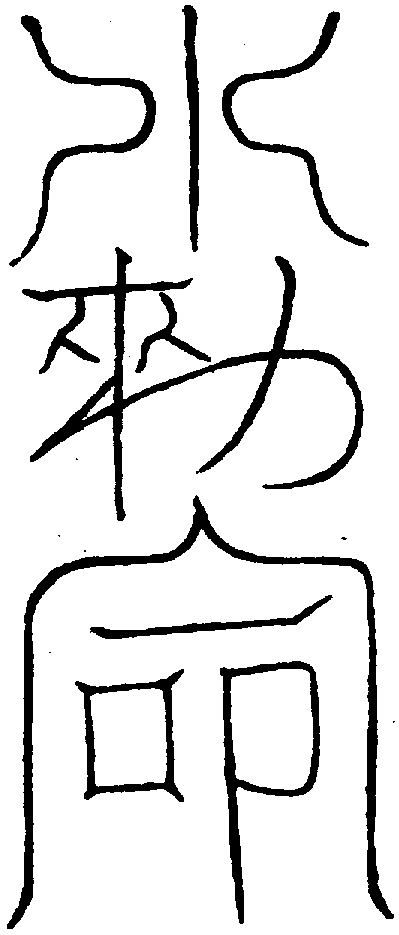 水
勑
命